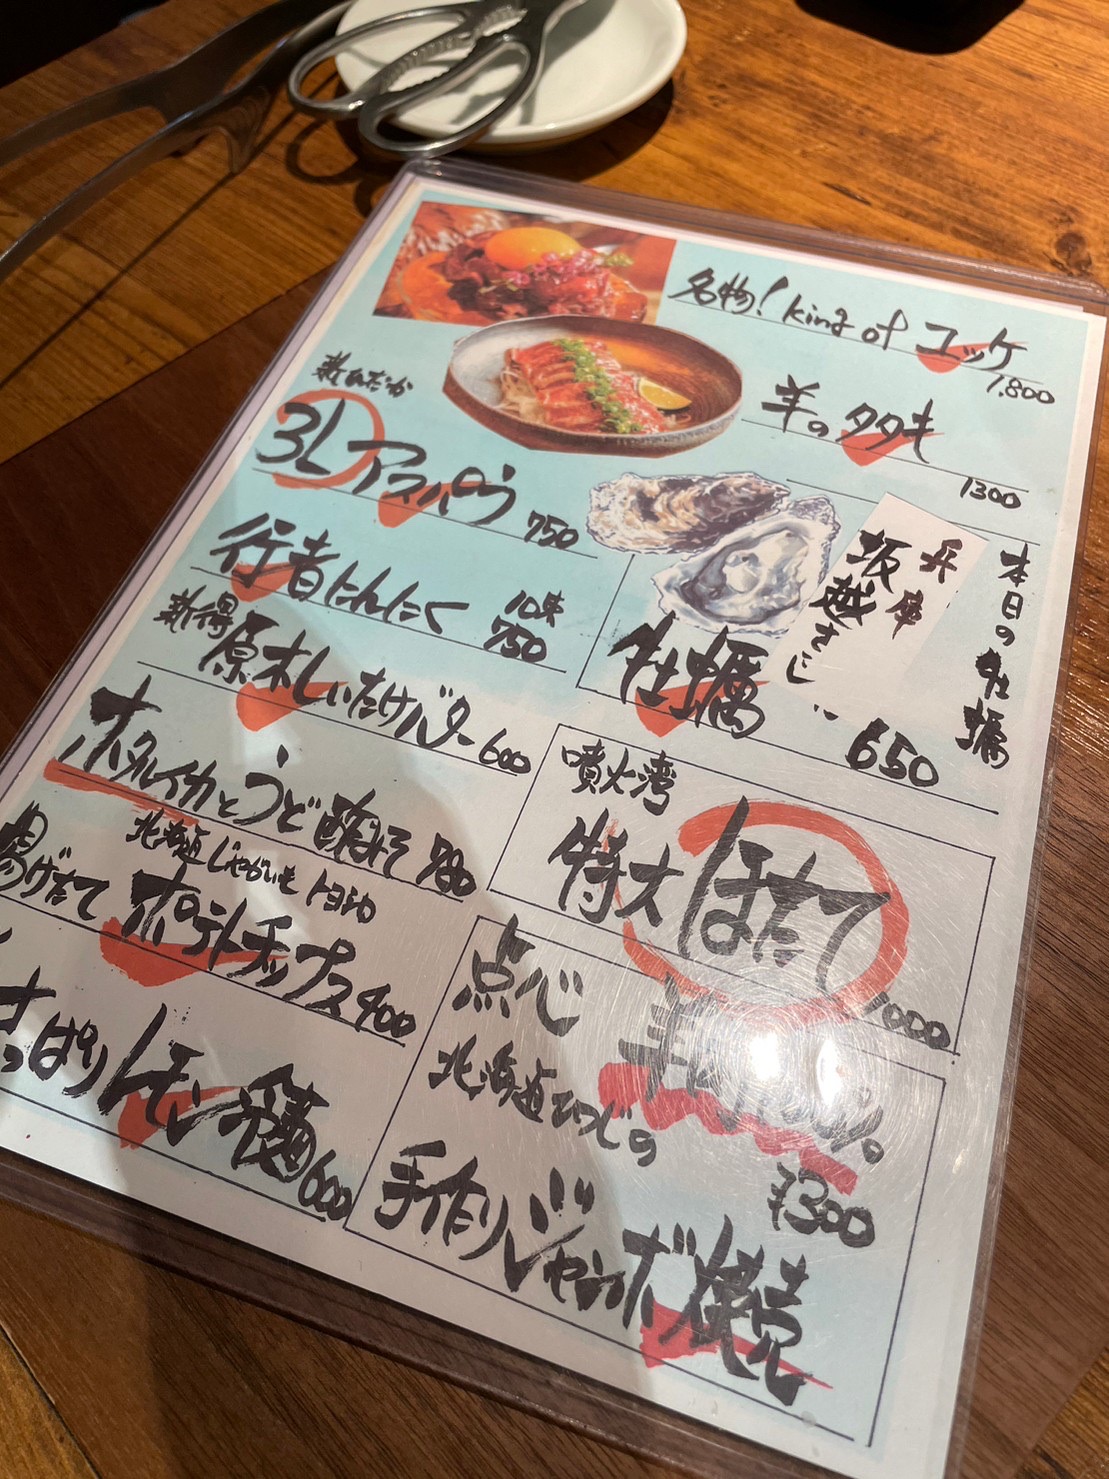 名物!king of ユッケ
1.800
羊のタタキ
1300
3Lアスパラ
750
行者にんにく
750
原木しいたけバター 600
本日の牡蠣
兵庫
坂越
牡蠣
650
ホタルイカとうど酢みそ 780
噴火湾
特大ほたて
1000
北海道じゃがいも トヨシロ
揚げたて
ポテトチップス 400
さっぱりレモン冷麺 600
点心
北海道ひつじの
¥300
手作りジャンボ焼売